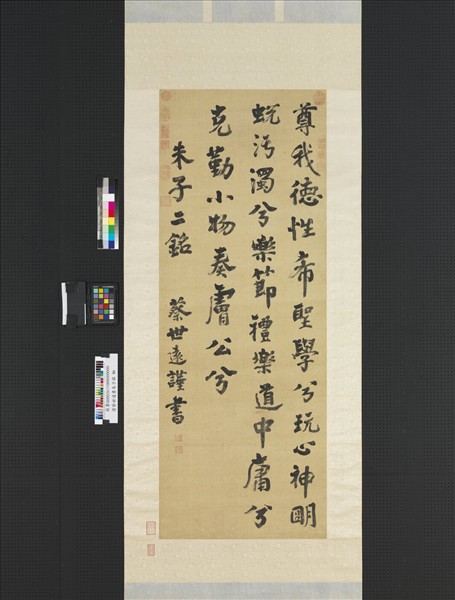 尊我德性希聖學兮玩心神明
蛻汚濁兮樂節禮樂道中庸兮
克勤小物奏膚公兮
朱子二銘
蔡世遠謹書